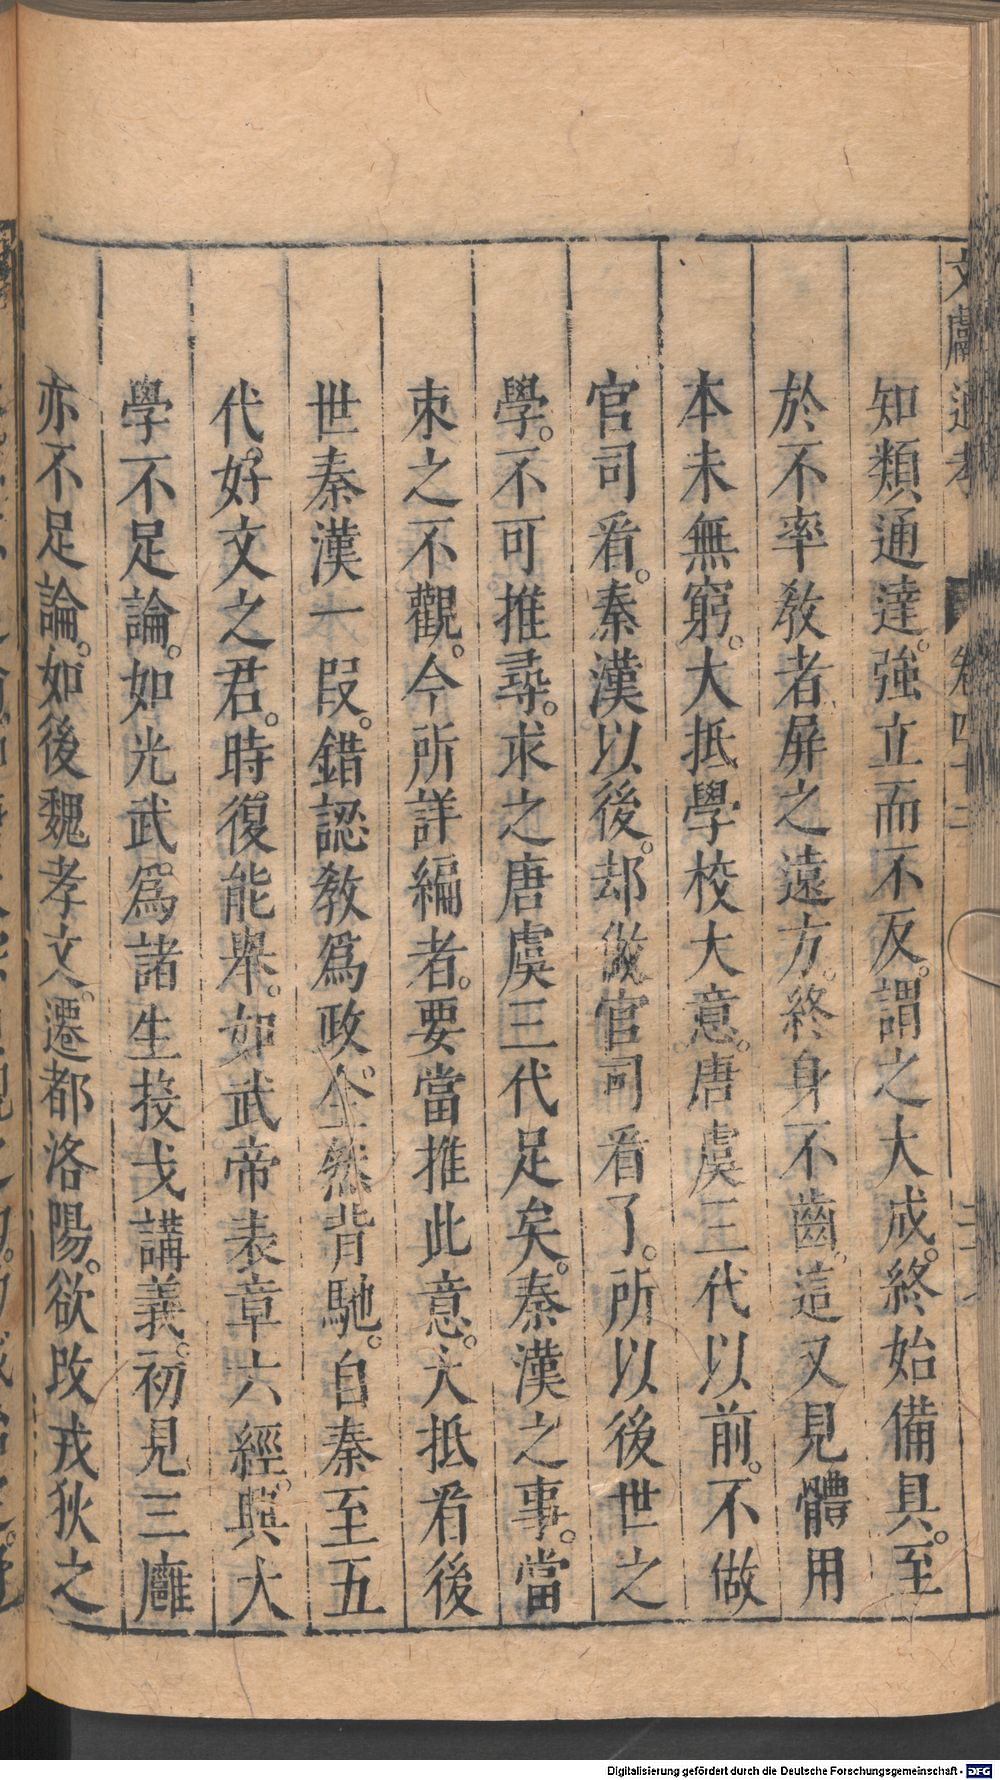 文獻通考 卷四十二
知類通達。強立而不反。謂之大成。終始備具。至
於不率教者屏之遠方。終身不齒。這又見體用
本末無窮。大抵學校大意。唐虞三代以前。不做
官司看。秦漢以後。却做官司看了。所以後世之
學。不可推尋。求之唐虞三代足矣。秦漢之事。當
束之不觀。今所詳編者。要當推此意。大抵看後
世秦漢一段。錯認教爲政。全然背馳。自秦至五
代。好文之君。時復能舉。如武帝表章六經。興大
學不足論。如光武。爲諸生投戈講義。初見三雝
亦不足論。如後魏孝文。遷都洛陽。欲改戎狄之
Digitalisierung gefördert durch die Deutsche Forschungsgemeinschaft - DFG